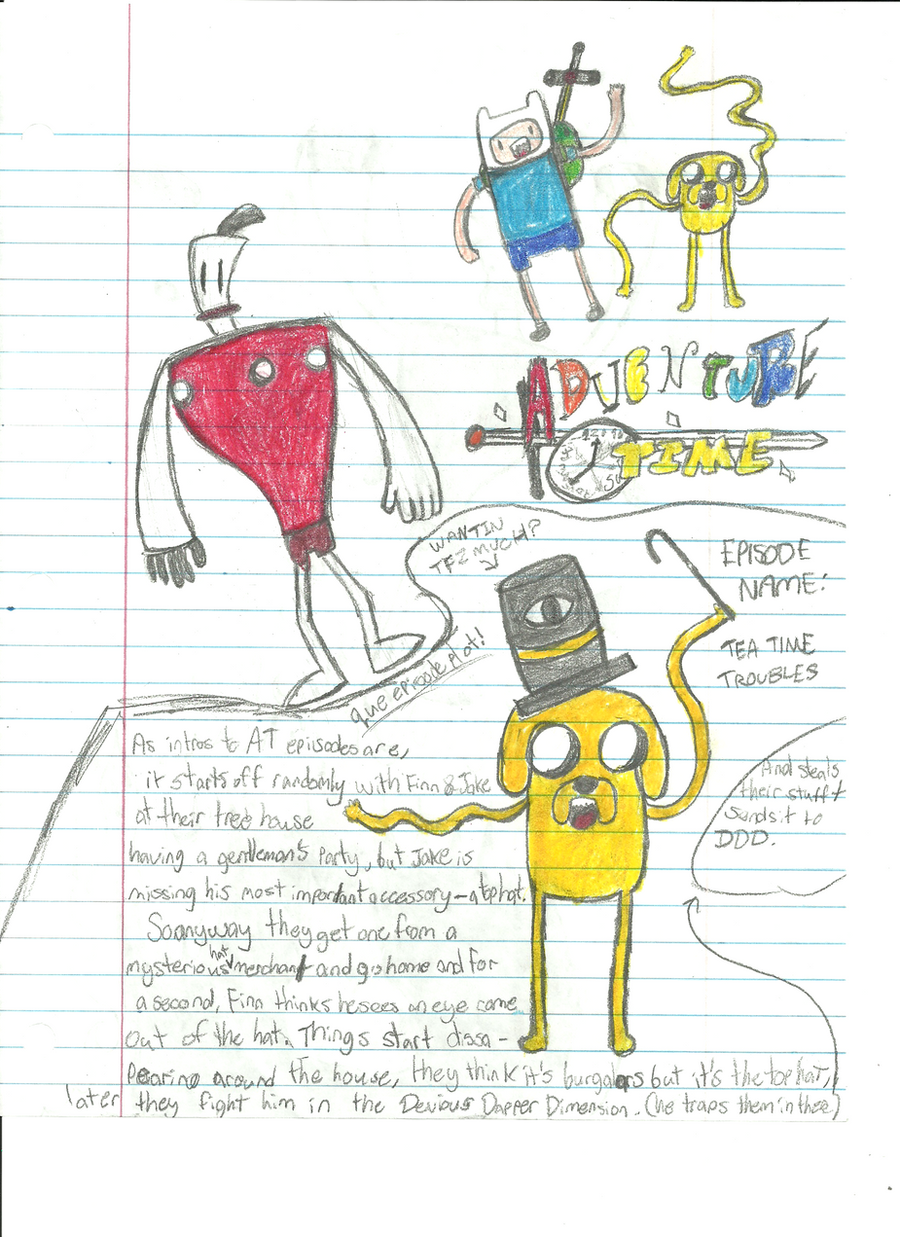 ADVENTURE
TIME
WANTIN
TF2 MUCH?
EPISODE
NAME:
TEA TIME
TROUBLES
que episode plot!
As intros to AT episodes are,
it starts off randomly with Finn & Jake
at their tree house
having a gentleman's party, but Jake is
missing his most important accessory - a tophat.
Soanyway they get one from a
mysterious hat merchant and go home and for
a second, Finn thinks he sees an eye come
out of the hat. Things start dissa-
pearing around the house, they think it's burgalors but it's the top hat,
later they fight him in the Devious Dapper Dimension. (he traps them in there)
And steals
their stuff +
sends it to
DDD.